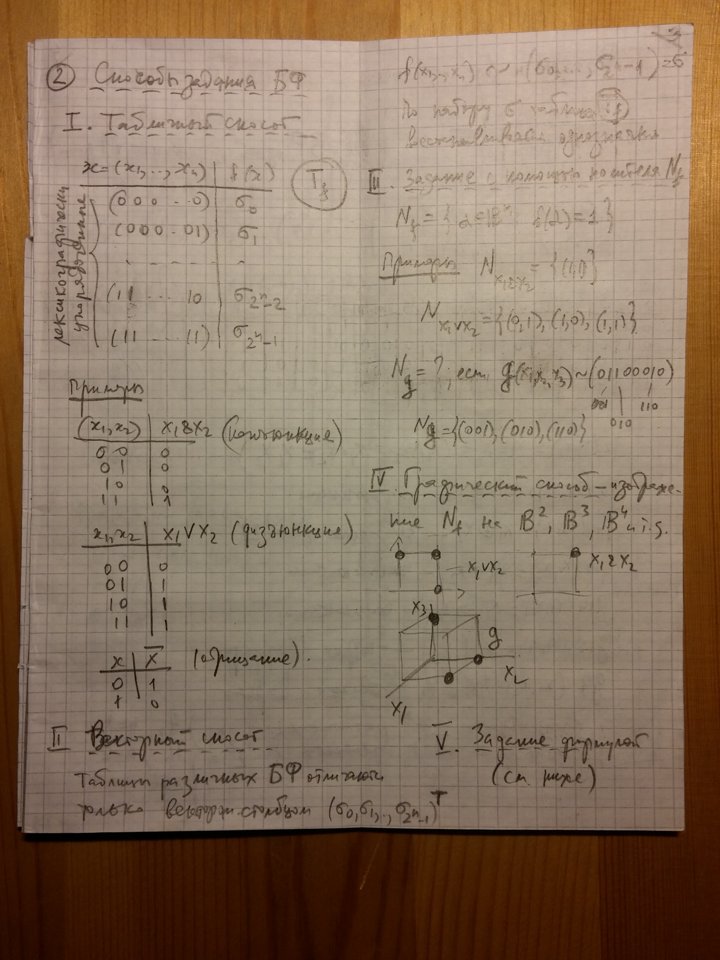 ② Способы задания БФ
I. Табличный способ
x=(x₁,..., xₙ) | f(x)
T_f
лексикографически упорядоченные
(000...0) | σ₀
(000...01) | σ₁
- - - - - -
(11...10 | σ_{2ⁿ-2}
(11...11) | σ_{2ⁿ-1}
Примеры
(x₁,x₂) | x₁&x₂ (конъюнкция)
00 | 0
01 | 0
10 | 0
11 | 1
x₁,x₂ | x₁∨x₂ (дизъюнкция)
00 | 0
01 | 1
10 | 1
11 | 1
x | x̄ (отрицание).
0 | 1
1 | 0
II Векторный способ
Таблицы различных БФ отличаются
только вектором-столбцом (σ₀,σ₁,..,σ_{2ⁿ-1})ᵀ
3
f(x₁,..,xₙ) ~ (σ₀,..., σ_{2ⁿ-1})=σ
По набору σ таблица T_f
восстанавливается однозначно
III. Задание с помощью носителя N_f
N_f = { α=Bⁿ f(α)=1 }
Примеры N_{x₁&x₂} = {(1,1)}
N_{x₁∨x₂} = {(0,1), (1,0), (1,1)}
N_g = ?, если g(x₁,x₂,x₃)~(01100010)
001 010 110
N_g = {(001), (010), (110)}
IV. Графический способ – изображе-
ние N_f на B², B³, B⁴ и т.д.
x₁∨x₂
x₁&x₂
x₃
g
x₂
x₁
V. Задание формулой
(см. ниже)